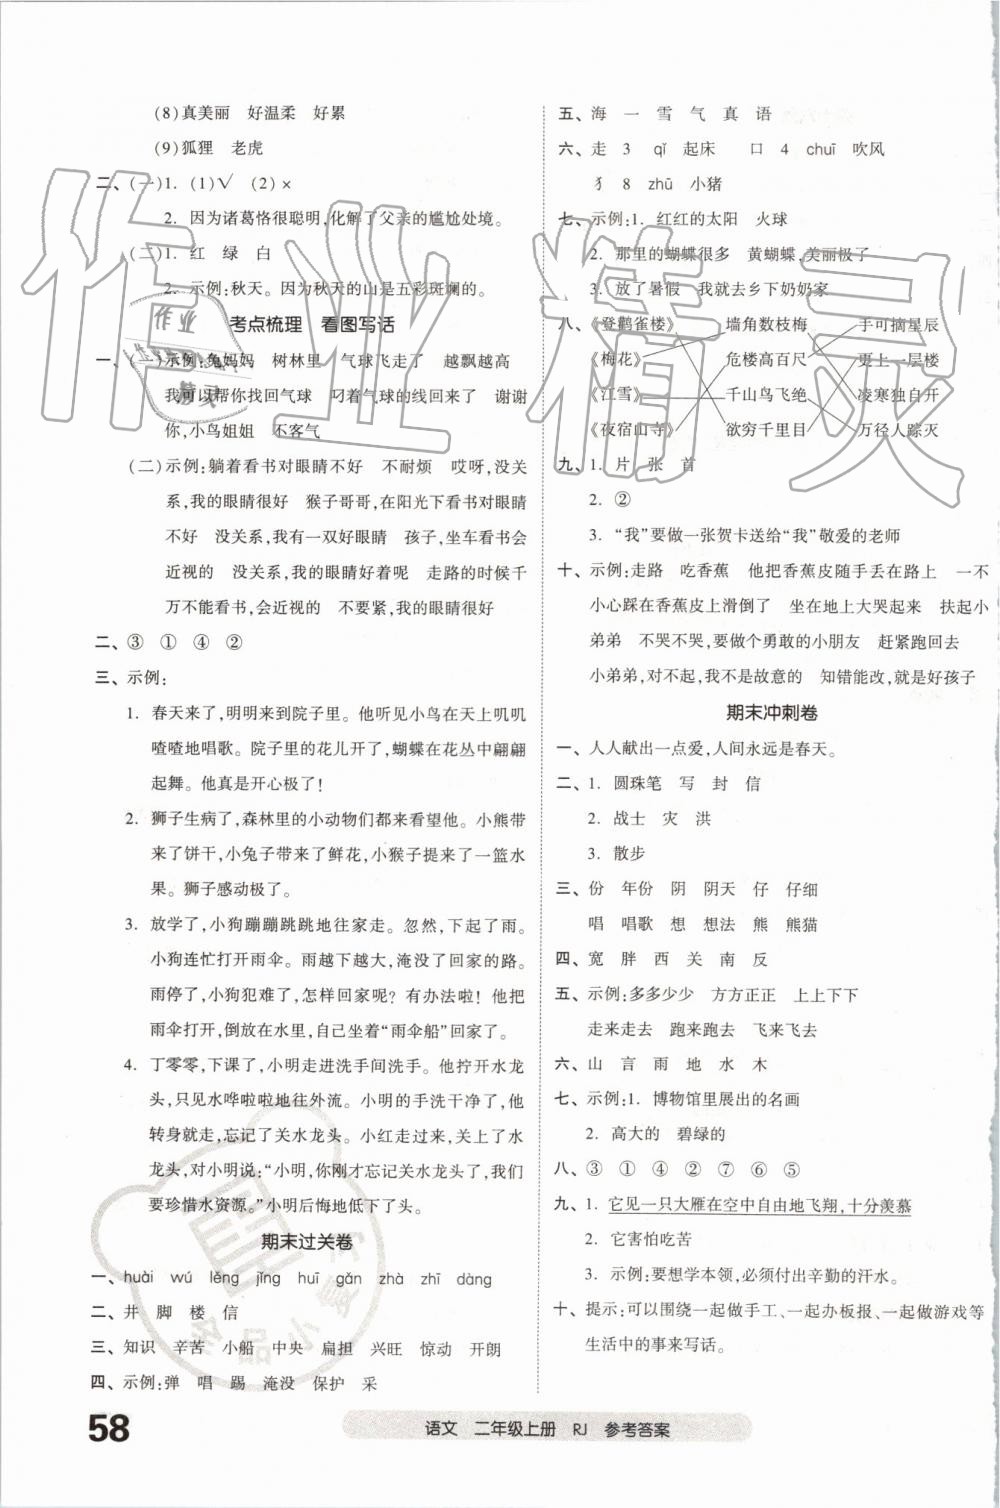 (8)真美丽　好温柔　好累
(9)狐狸　老虎
二、(一)1. (1)√　(2)×
2. 因为诸葛恪很聪明,化解了父亲的尴尬处境。
(二)1. 红　绿　白
2. 示例:秋天。因为秋天的山是五彩斑斓的。
考点梳理　看图写话
一、(一)示例:兔妈妈　树林里　气球飞走了　越飘越高
我可以帮你找回气球　叼着气球的线回来了　谢谢
你,小鸟姐姐　不客气
(二)示例:躺着看书对眼睛不好　不耐烦　哎呀,没关
系,我的眼睛很好　猴子哥哥,在阳光下看书对眼睛
不好　没关系,我有一双好眼睛　孩子,坐车看书会
近视的　没关系,我的眼睛好着呢　走路的时候千
万不能看书,会近视的　不要紧,我的眼睛很好
二、③　①　④　②
三、示例:
1. 春天来了,明明来到院子里。他听见小鸟在天上叽叽
喳喳地唱歌。院子里的花儿开了,蝴蝶在花丛中翩翩
起舞。他真是开心极了!
2. 狮子生病了,森林里的小动物们都来看望他。小熊带
来了饼干,小兔子带来了鲜花,小猴子提来了一篮水
果。狮子感动极了。
3. 放学了,小狗蹦蹦跳跳地往家走。忽然,下起了雨。
小狗连忙打开雨伞。雨越下越大,淹没了回家的路。
雨停了,小狗犯难了,怎么回家呢?有办法啦!他把
雨伞打开,倒放在水里,自己坐着“雨伞船”回家了。
4. 丁零零,下课了,小明走进洗手间洗手。他拧开水龙
头,只见水哗啦啦地往外流。小明的手洗干净了,他
转身就走,忘记了关水龙头。小红走过来,关上了水
龙头,对小明说:“小明,你刚才忘记关水龙头了,我们
要珍惜水资源。”小明后悔地低下了头。
期末过关卷
一、huài　wú　lěng　jǐng　huī　gǎn　zhà　zhī　dàng
二、井　脚　楼　信
三、知识　辛苦　小船　中央　扁担　兴旺　惊动　开朗
四、示例:弹　唱　踢　淹没　保护　采
五、海　一　雪　气　真　语
六、走　3　qǐ　起床　口　4　chuī　吹风
犭　8　zhū　小猪
七、示例:1. 红红的太阳　火球
2. 那里的蝴蝶很多　黄蝴蝶,美丽极了
3. 放了暑假　我就去乡下奶奶家
八、《登鹳雀楼》　墙角数枝梅　手可摘星辰
《梅花》　危楼高百尺　更上一层楼
《江雪》　千山鸟飞绝　凌寒独自开
《夜宿山寺》　欲穷千里目　万径人踪灭
九、1. 片　张　首
2. ②
3. “我”要做一张贺卡送给“我”敬爱的老师
十、示例:走路　吃香蕉　他把香蕉皮随手丢在路上　一不
小心踩在香蕉皮上滑倒了　坐在地上大哭起来　扶起小
弟弟　不哭不哭,要做个勇敢的小朋友　赶紧跑回去
小弟弟,对不起,我不是故意的　知错能改,就是好孩子
期末冲刺卷
一、人人献出一点爱,人间永远是春天。
二、1. 圆珠笔　写　封　信
2. 战士　灾　洪
3. 散步
三、份　年份　阴　阴天　仔　仔细
唱　唱歌　想　想法　熊　熊猫
四、宽　胖　西　关　南　反
五、示例:多多少少　方方正正　上上下下
走来走去　跑来跑去　飞来飞去
六、山　言　雨　地　水　木
七、示例:1. 博物馆里展出的名画
2. 高大的　碧绿的
八、③　①　④　②　⑦　⑥　⑤
九、1. 它见一只大雁在空中自由地飞翔,十分羡慕
2. 它害怕吃苦
3. 示例:要想学本领,必须付出辛勤的汗水。
十、提示:可以围绕一起做手工、一起办板报、一起做游戏等
生活中的事来写话。
58
语文　二年级上册　RJ　参考答案
作业精灵